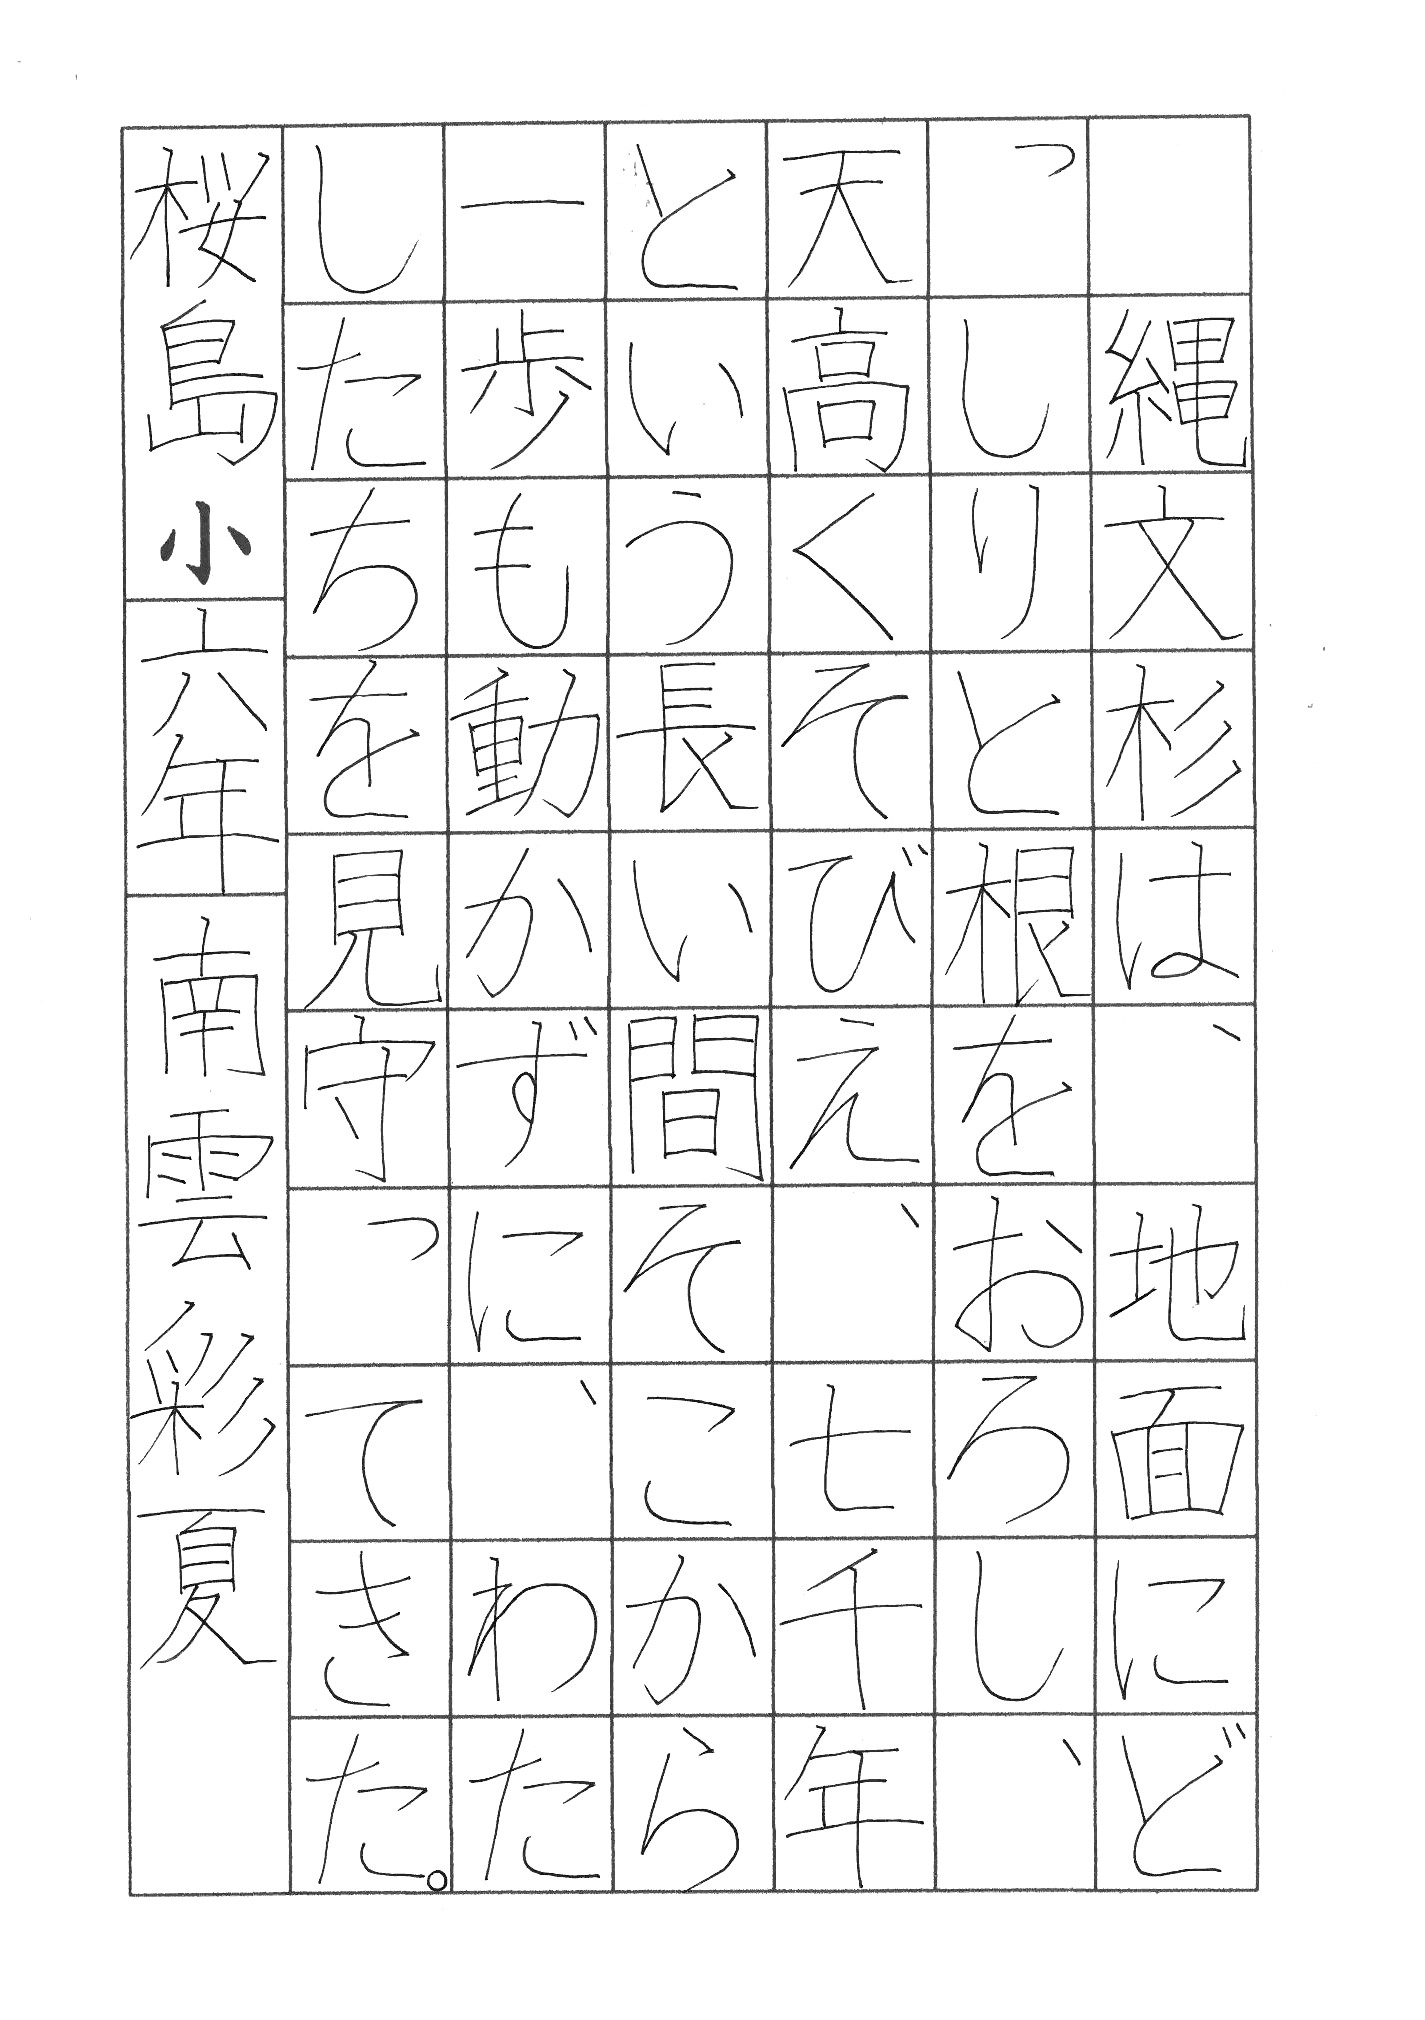 縄文杉は、地面にど
っしりと根をおろし、
天高くそびえ、七千年
という長い間そこから
一歩も動かずに、わた
したちを見守ってきた。
桜島小六年南雲彩夏